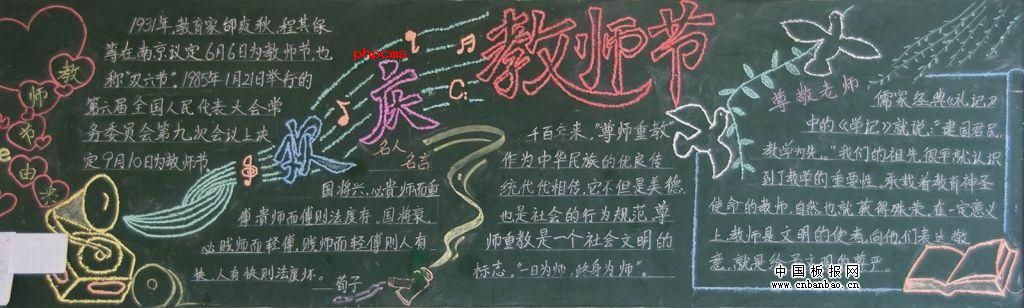 欢庆
教师节
教
师
节
由
来
1931年,教育家邰爽秋、程其保
等在南京议定6月6日为教师节,也
称"双六节"。1985年1月21举行的
第六届全国人民代表大会常
务委员会第九次会议上决
定9月10日为教师节。
phpcms
名人
名言
国将兴,必贵师而重
傅,贵师而重傅则法度存。国将衰,
必贱师而轻傅,贱师而轻傅则人有
快,人有快则法度坏。
荀子
千百年来,"尊师重教"
作为中华民族的优良传
统代代相传,它不但是美德,
也是社会的行为规范,尊
师重教是一个社会文明的
标志。"一日为师,终身为师"。
尊敬老师
儒家经典《礼记》
中的《学记》就说:"建国君民,
教学为先。"我们的祖先很早就认识
到了教学的重要性。承载着教育神圣
使命的教师,自然也就获得殊荣。在一定意义
上,教师是文明的使者,向他们表达敬
意,就是给予文明的尊严。
中国板报网
www.cnbanbao.cn